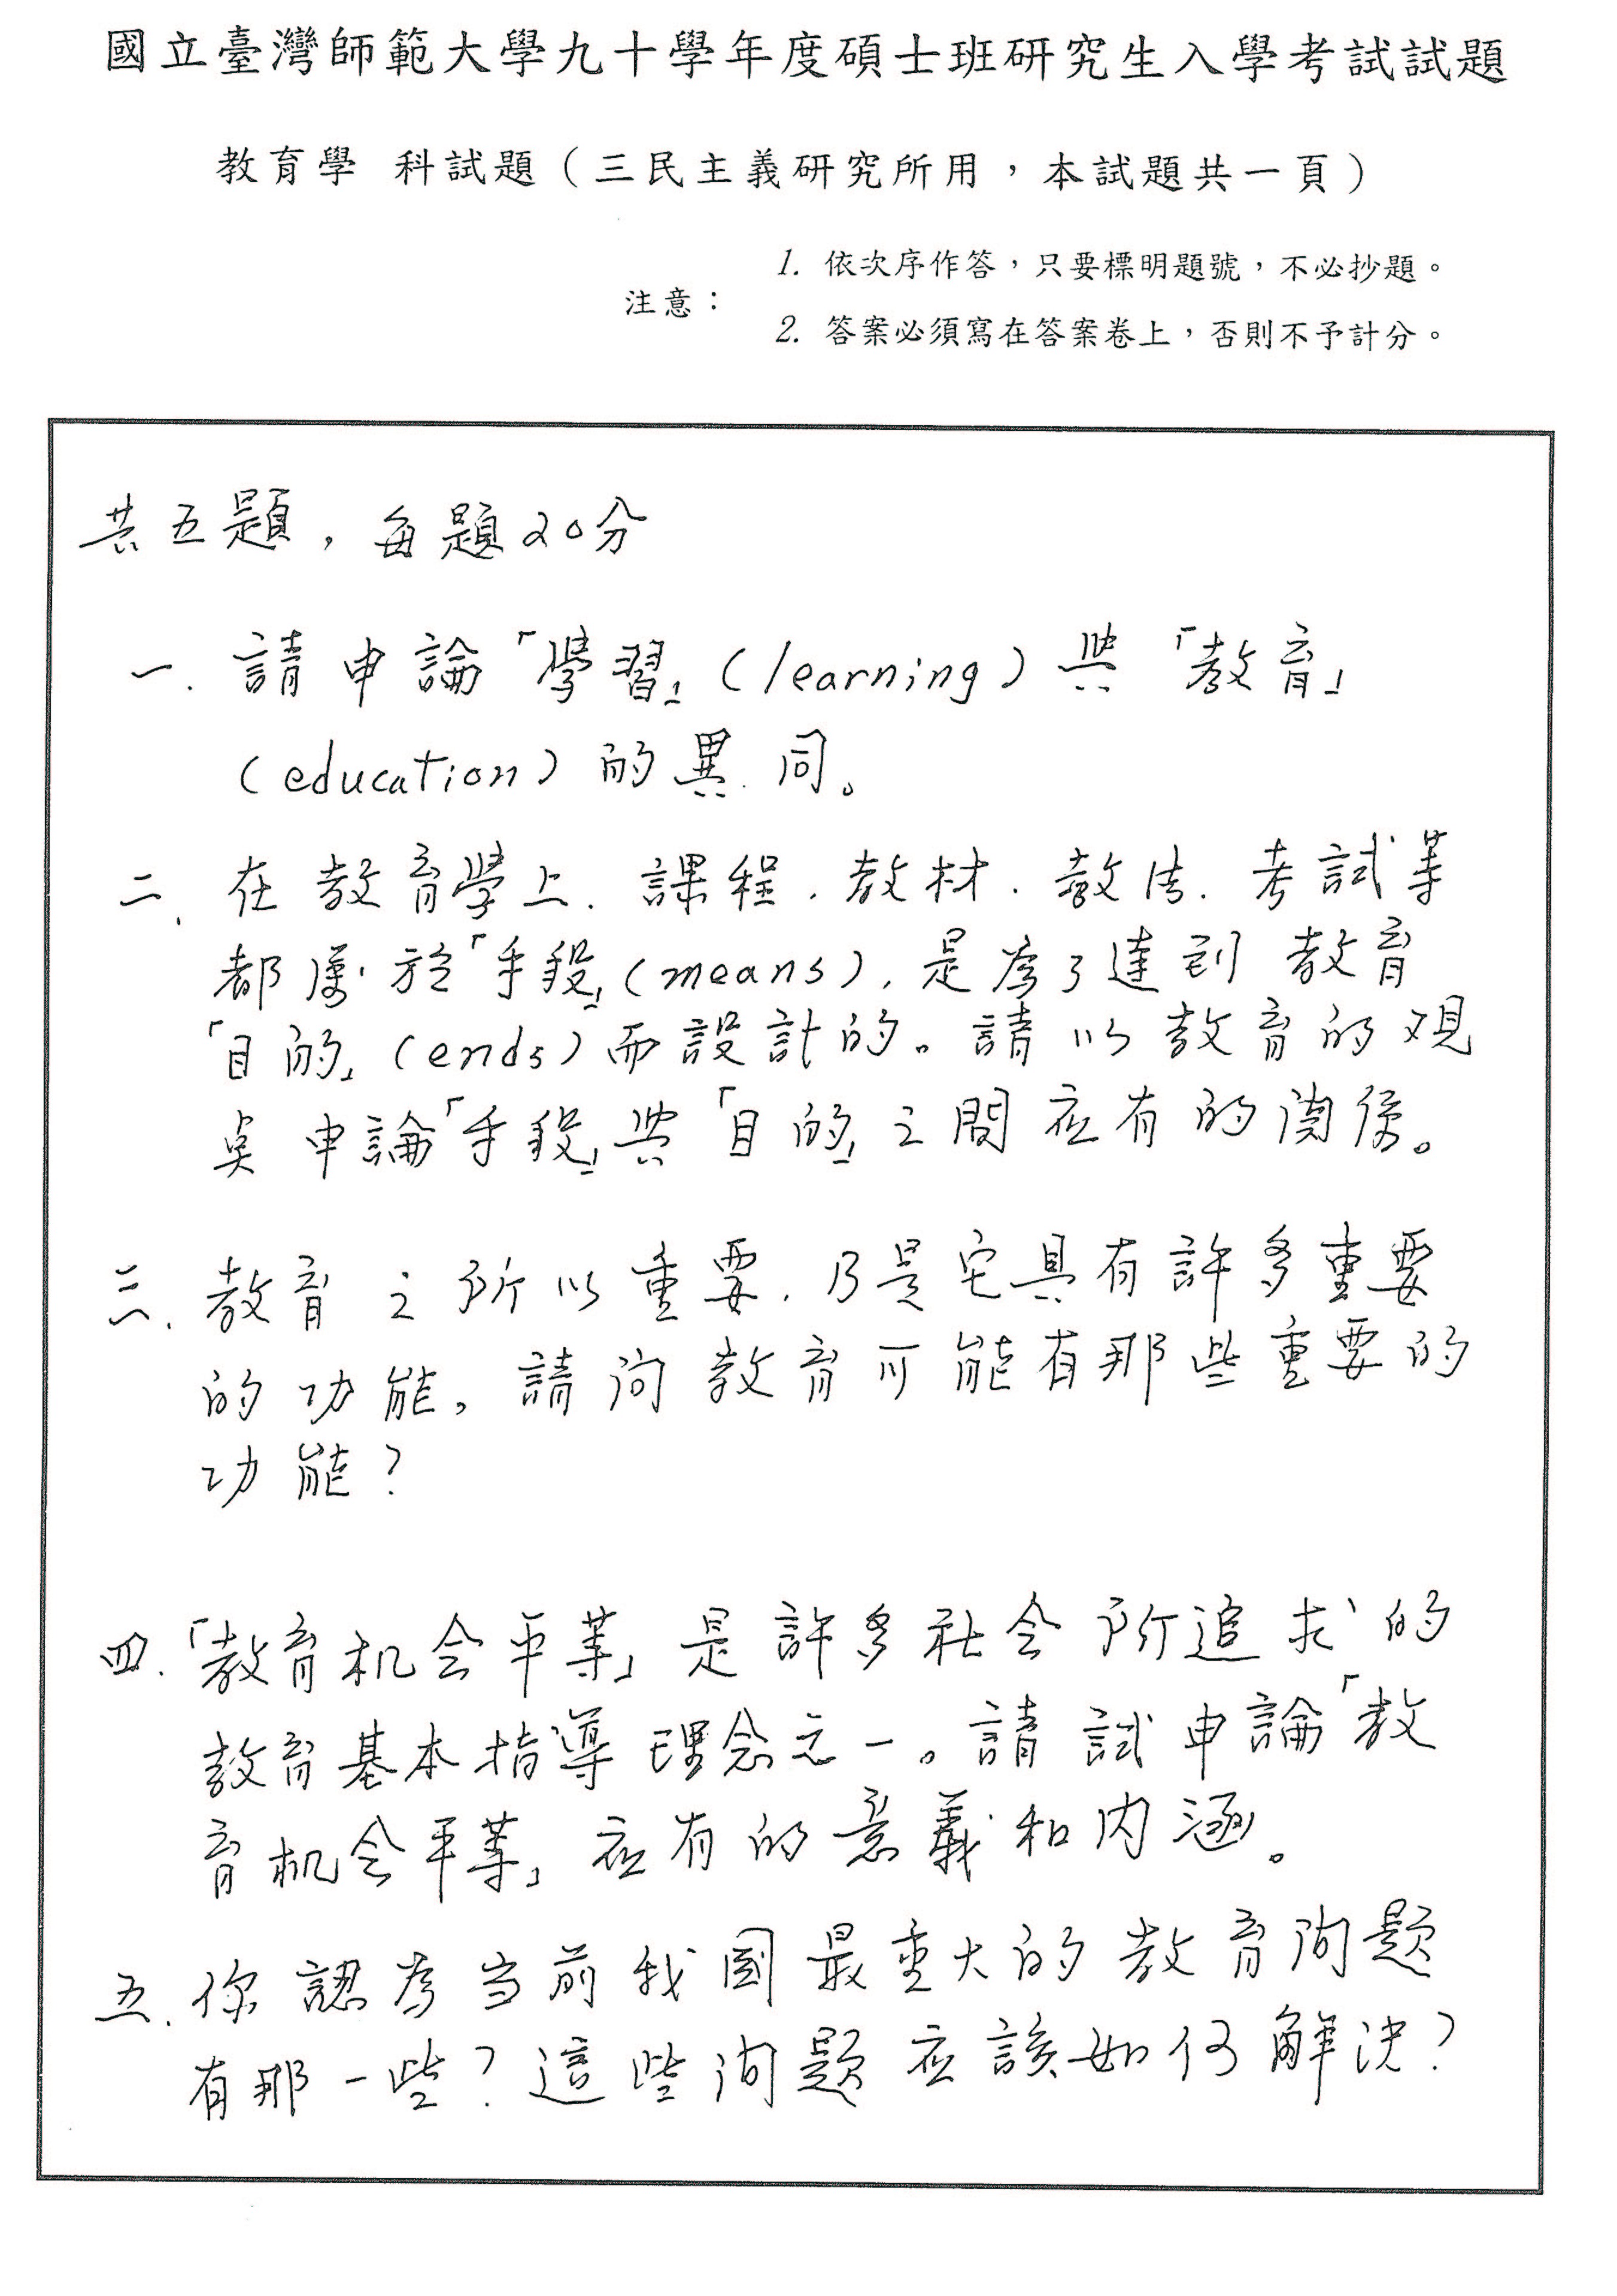 國立臺灣師範大學九十學年度碩士班研究生入學考試試題
教育學 科試題（三民主義研究所用，本試題共一頁）
注意：
1. 依次序作答，只要標明題號，不必抄題。
2. 答案必須寫在答案卷上，否則不予計分。
共五題，每題20分
一. 請申論「學習」(learning)與「教育」
(education)的異同。
二、在教育學上、課程、教材、教法、考試等
都屬於「手段」(means)，是為了達到教育
「目的」(ends)而設計的。請以教育的观
點申論「手段」與「目的」之間应有的関係。
三、教育之所以重要，乃是它具有許多重要
的功能。請问教育可能有那些重要的
功能？
四.「教育机会平等」是許多社会所追求的
教育基本指導理念之一。請試申論「教
育机会平等」应有的意義和內涵。
五、你認為当前我國最重大的教育问題
有那一些？這些问題应該如何解決？